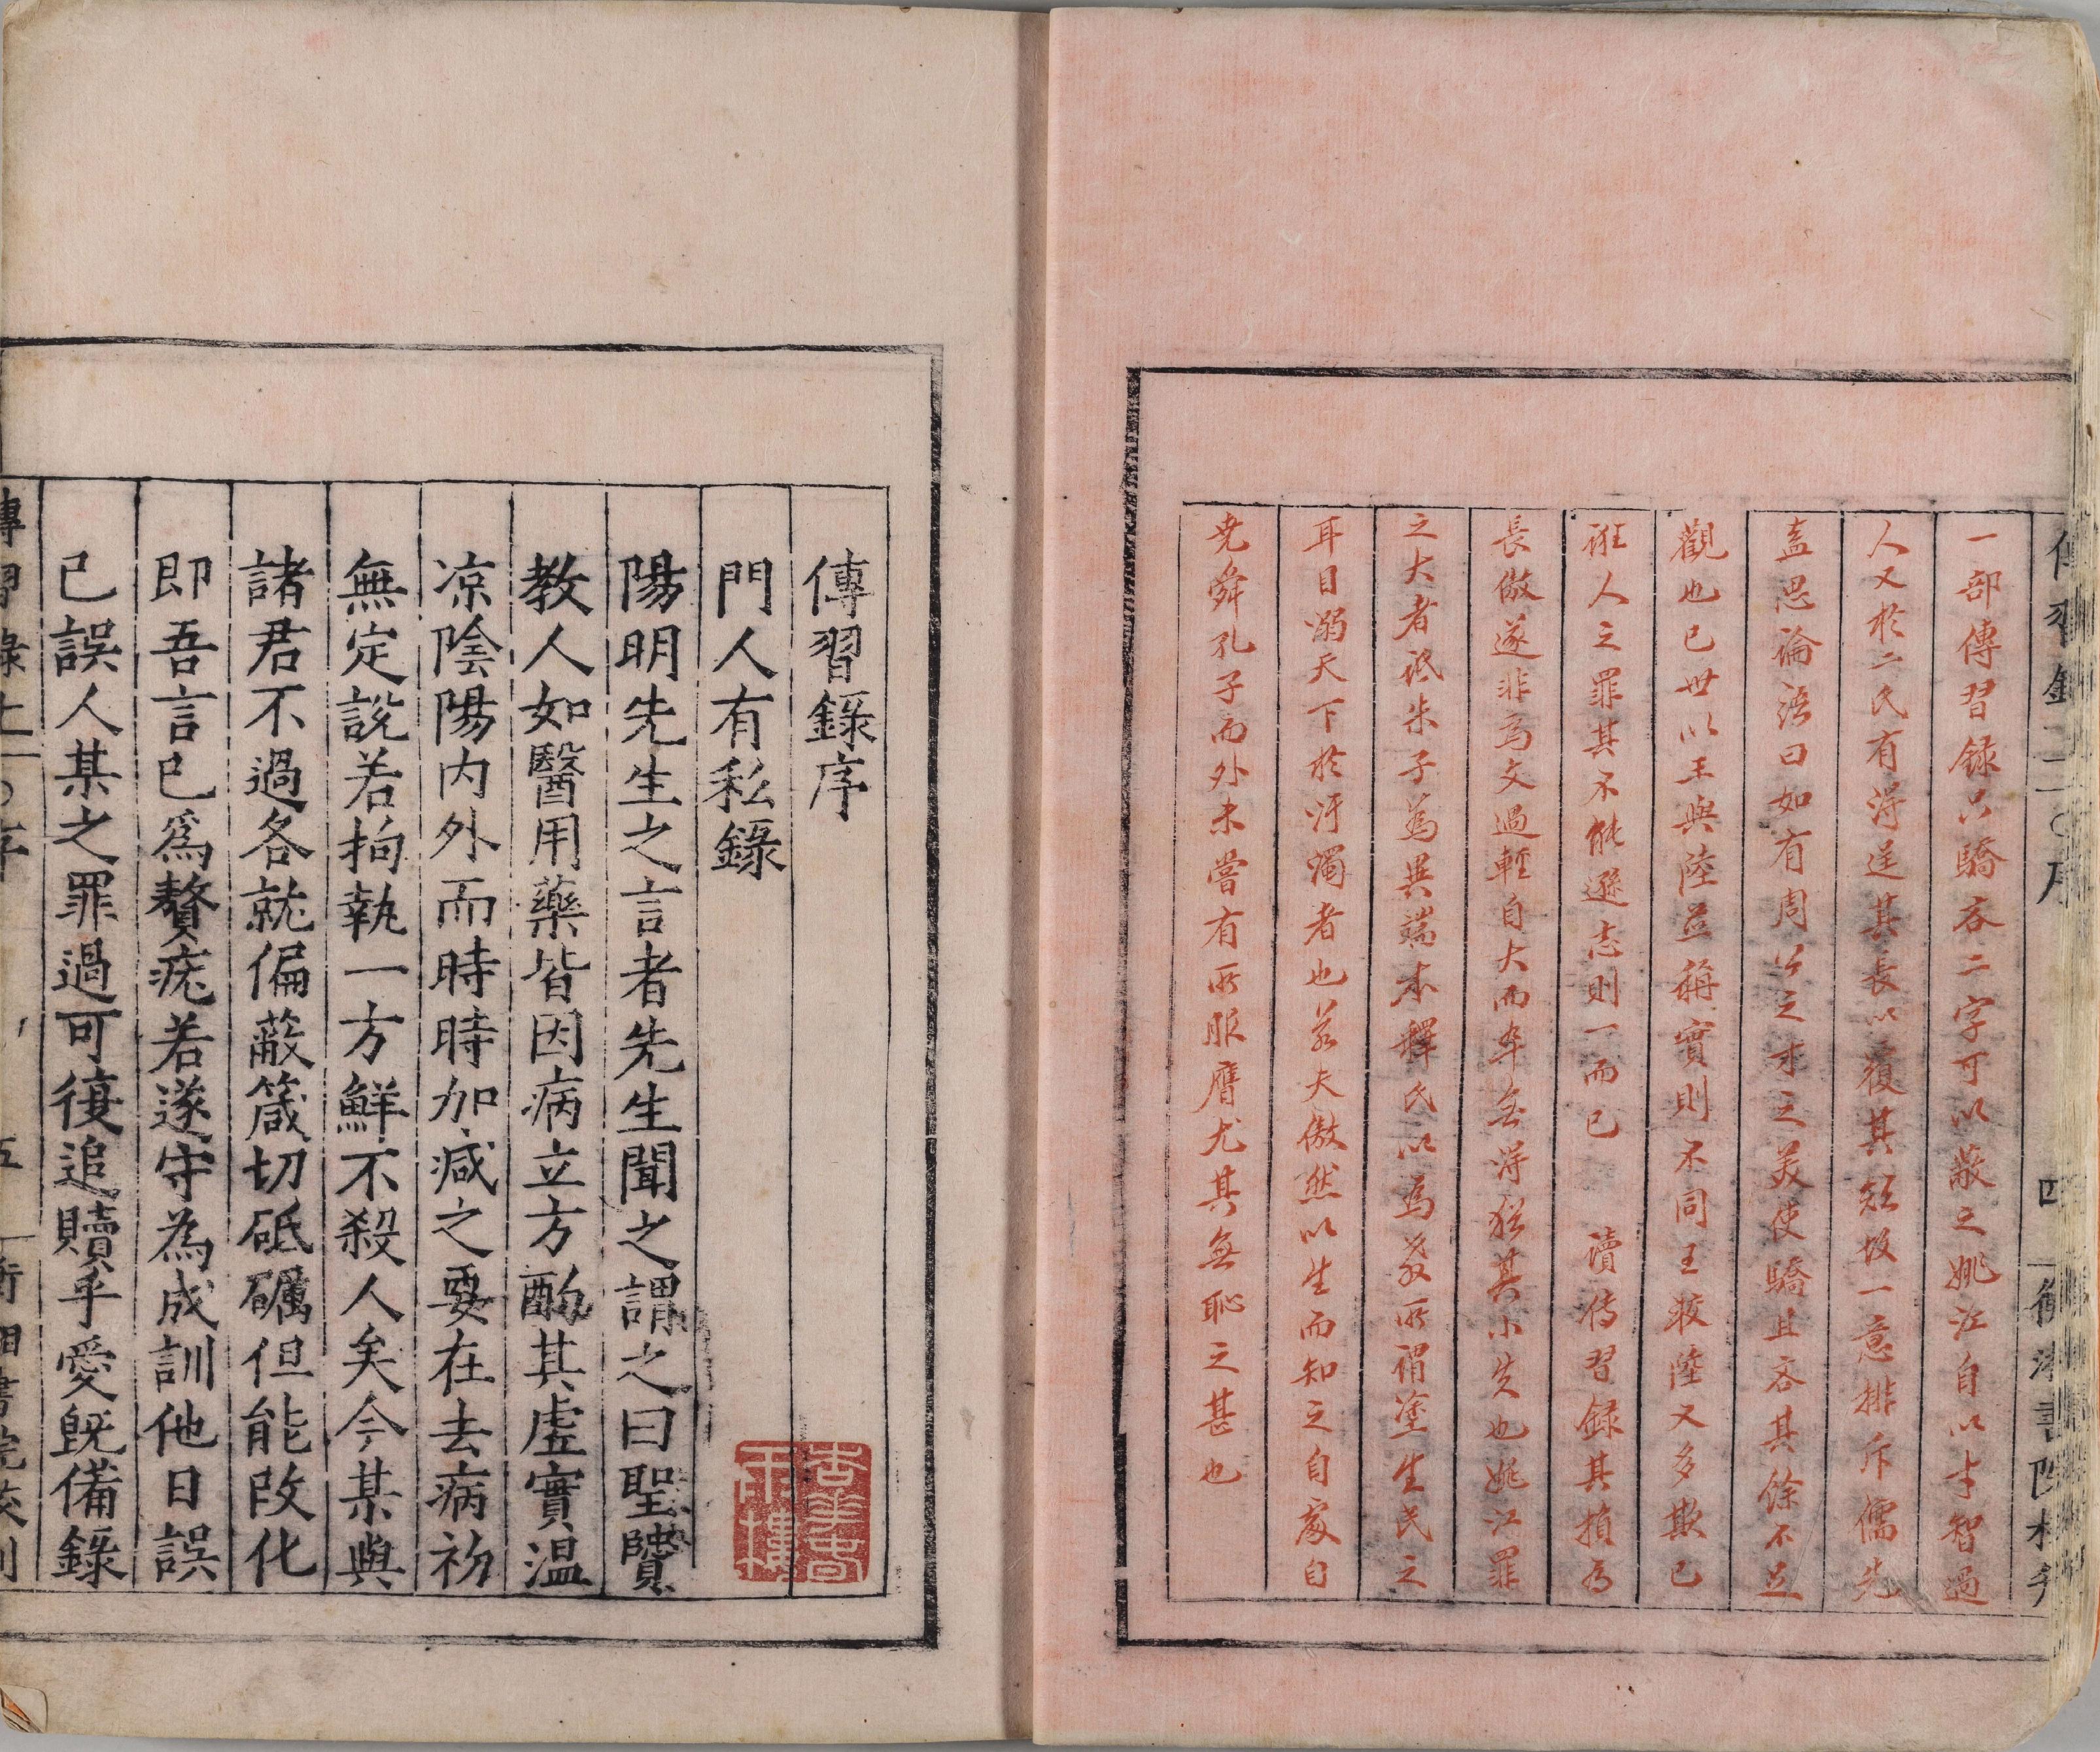 一部傳習録只驕吝二字可以蔽之姚江自以才智過
人又於二氏有得逞其長以覆其短故一意排斥儒先
盖思論語曰如有周公之才之美使驕且吝其餘不足
觀也已世以王與陸並稱實則不同王較陸又多欺己
誑人之罪其不能遜志則一而已　讀傳習録其損爲
長傲遂非爲文過輕自大而卒無得猶其小失也姚江罪
之大者詆朱子爲異端本釋氏以爲教所謂塗生民之
耳目溺天下於汙濁者也若夫傲然以生而知之自處自
堯舜孔子而外未嘗有所服膺尤其無恥之甚也
傳習錄序
門人有私錄
陽明先生之言者先生聞之謂之曰聖賢
教人如醫用藥皆因病立方酌其虛實温
凉陰陽内外而時時加减之要在去病初
無定說若拘執一方鮮不殺人矣今某與
諸君不過各就偏蔽箴切砥礪但能改化
即吾言已爲贅疣若遂守為成訓他日誤
已誤人某之罪過可復追贖乎愛旣備錄